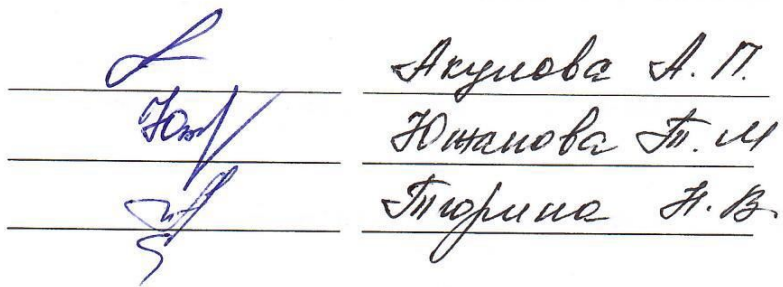 Акулова А. П.
Юж Южанова Т. М
Тюрина Н. В.